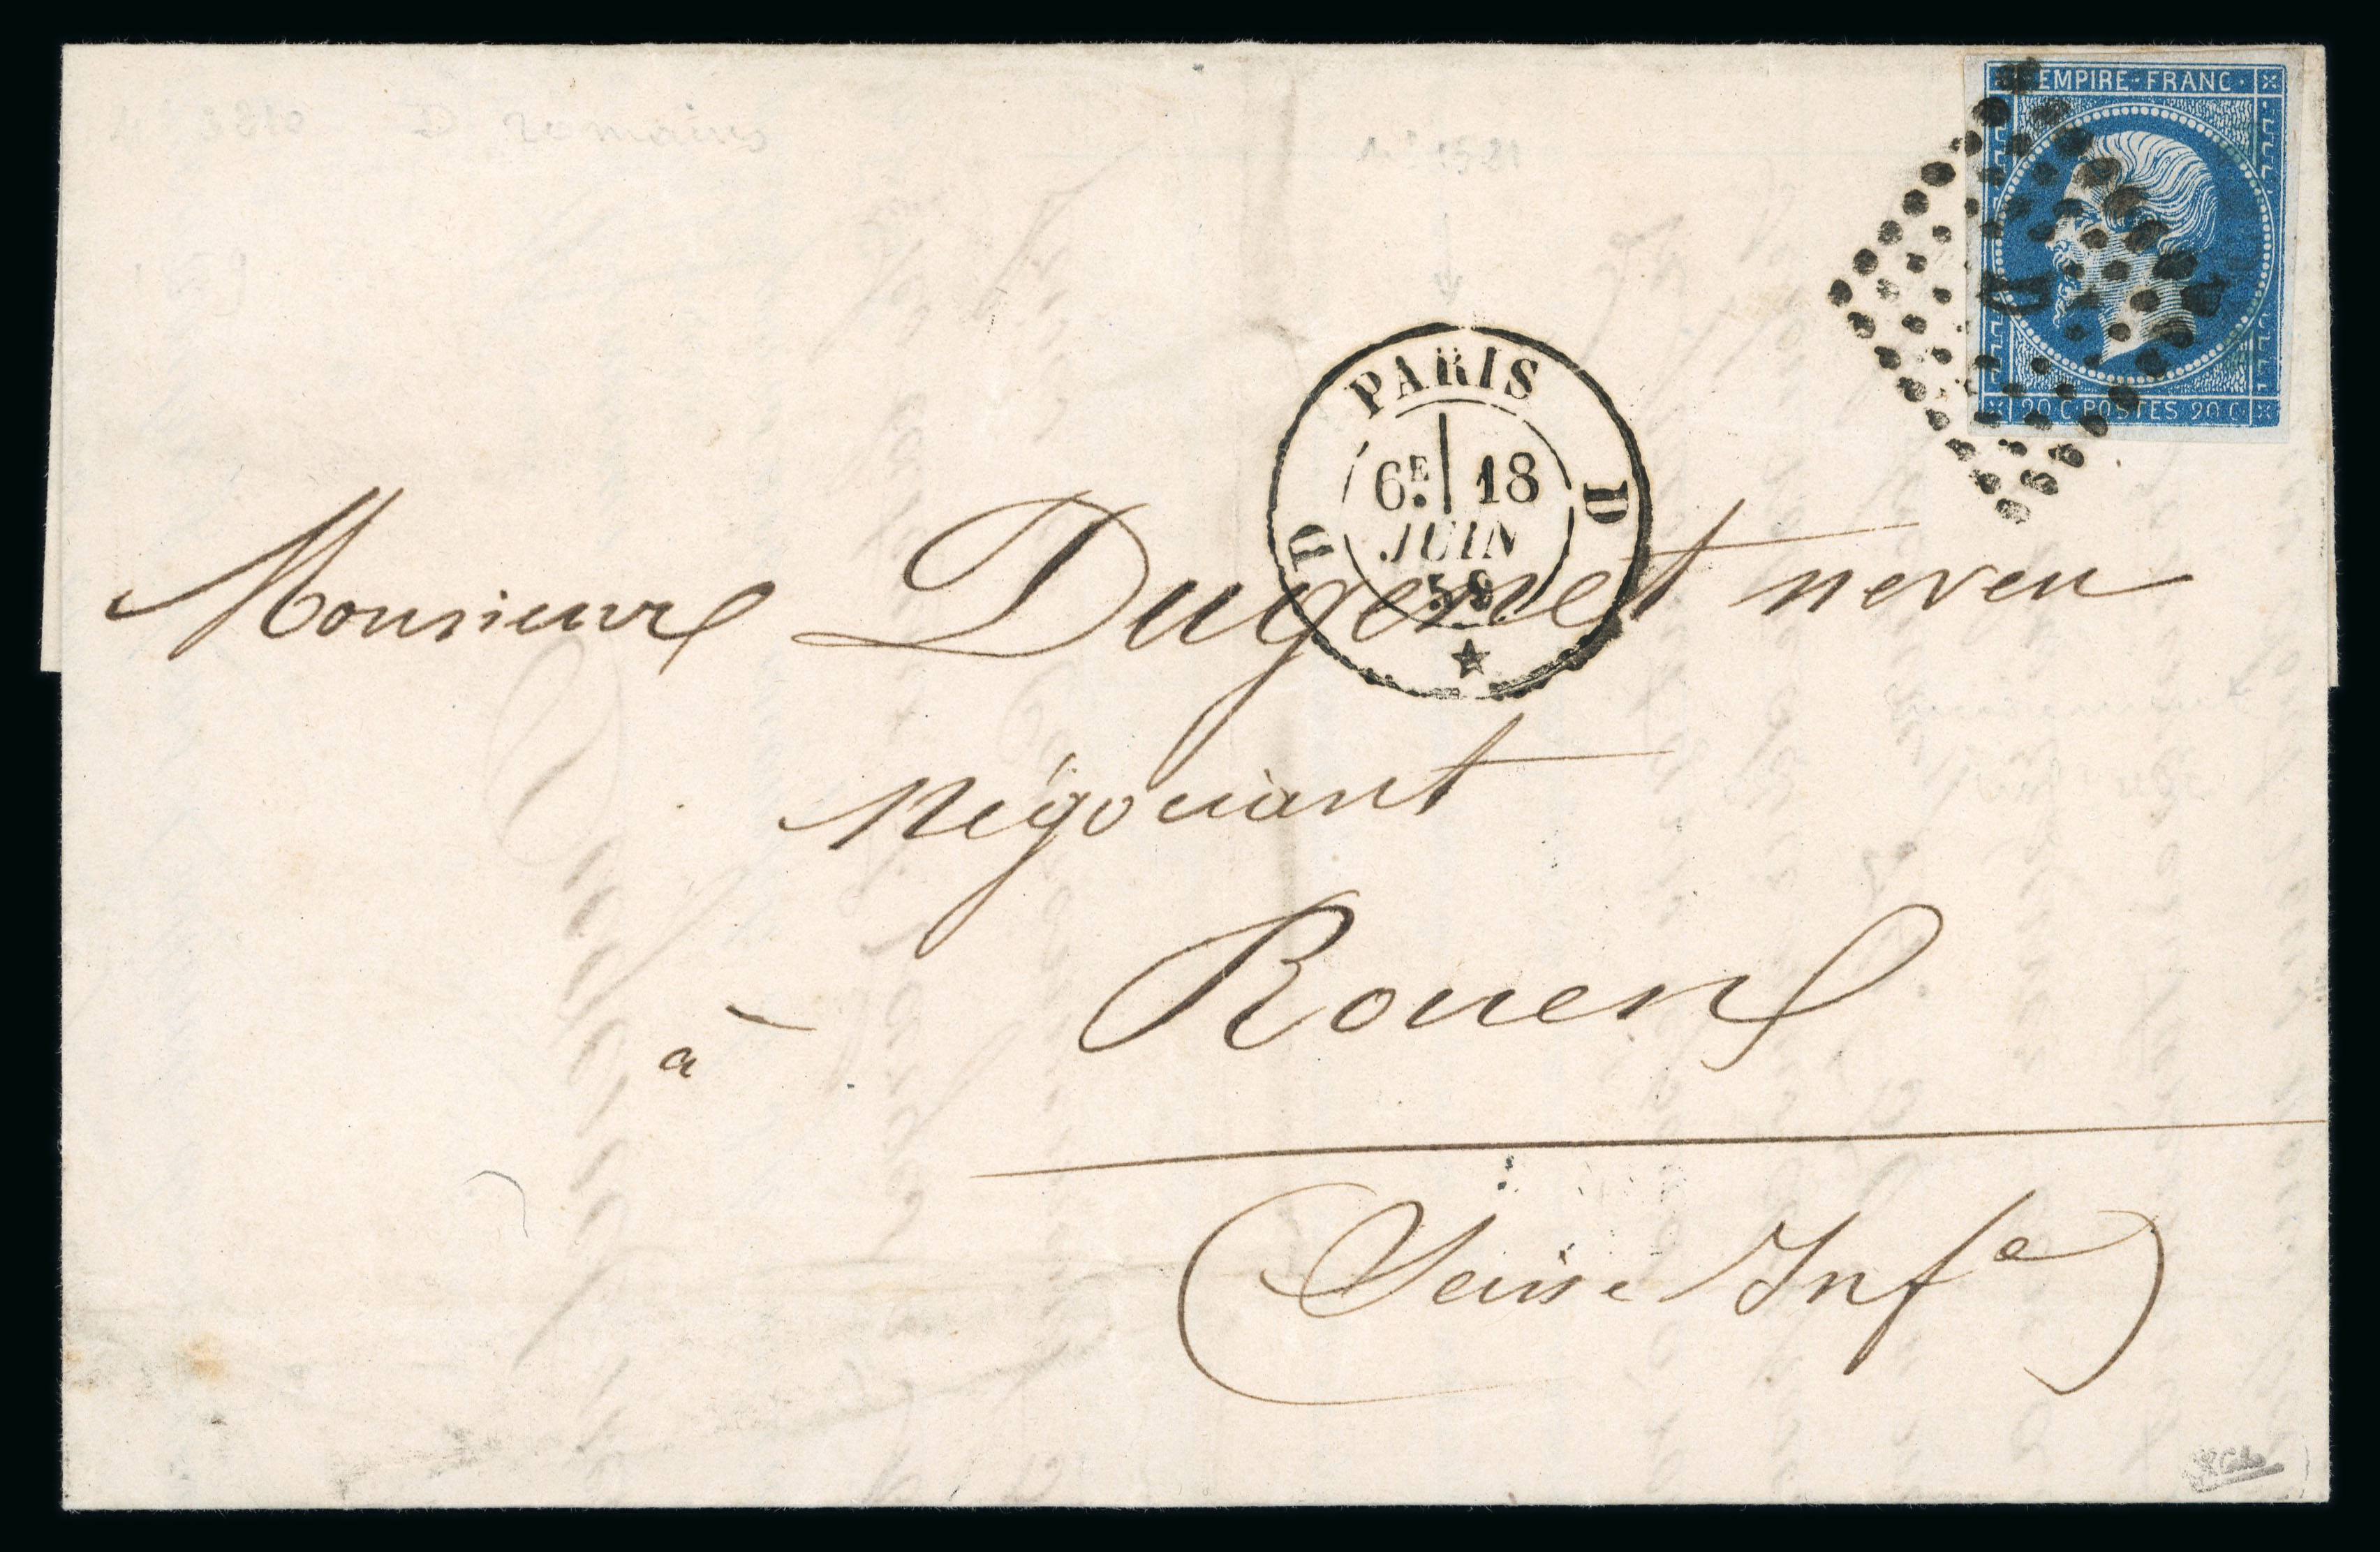 EMPIRE-FRANC
20 C POSTES 20 C
D
PARIS
6E 18
JUIN
58
D D
Monsieur Dugenet neveu
Négociant
à Rouen
(Seine Infe)